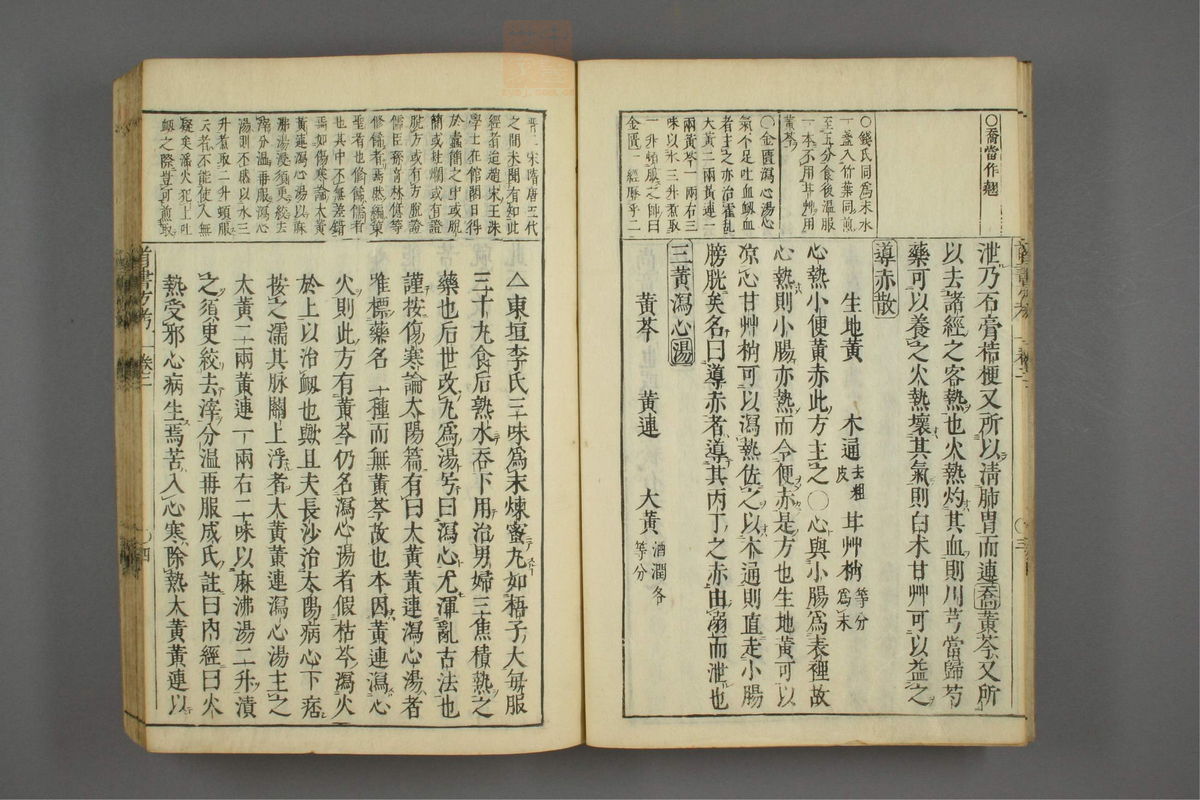 ○喬當作翹
○錢氏同爲末水
一盞入竹葉同煎
至五分食後溫服
一本不用甘艸用
黃芩
○金匱瀉心湯心
氣不足吐血衂血
者主之亦治霍乱
大黃二兩黃連一
兩黃芩一兩右三
味以水三升煮取
一升頓服之帥曰
金匱一經厥乎二
泄乃石膏桔梗又所以淸肺胃而連喬黃芩又所
以去諸經之客熱也火熱灼其血則川芎當歸芍
藥可以養之火熱壞其氣則白朮甘艸可以益之
導赤散
生地黃 木通去粗皮 甘艸梢等分爲末
心熱小便黃赤此方主之○心與小腸爲表裡故
心熱則小腸亦熱而令便赤是方也生地黃可以
凉心甘艸梢可以瀉熱佐之以木通則直走小腸
膀胱矣名曰導赤者導其丙丁之赤由溺而泄也
三黃瀉心湯
黃芩 黃連 大黃酒潤各等分
晋宋隋唐五代
之間未聞有如此
經者迨趙宋王洙
學士在館閣日得
於蠹簡之中或脫
簡或杜爛或有證
脫方或有方脫證
儒臣孫奇林億等
修飾者焉然編集
聖者也脩飾儒者
也其中不無差錯
焉如傷寒論大黃
黃連瀉心湯以麻
沸湯浸須更絞去
滓分溫再服瀉心
湯則不然以水三
升煮取二升頓服
天者不能使人無
疑矣瀋火犯上吐
衂之際豈可煎取
△東垣李氏三味爲末煉蜜丸如梧子大每服
三十丸食后熟水吞下用治男婦三焦積熱之
藥也后世改丸爲湯号曰瀉心尤渾亂古法也
謹按傷寒論太陽篇有曰大黃黃連瀉心湯者
唯標藥名二種而無黃芩故也本因黃連瀉心
火則此方有黃芩仍名瀉心湯者假枯芩瀉火
於上以治衂也歟且夫長沙治太陽病心下痞
按之濡其脉關上浮者大黃黃連瀉心湯主之
大黃二兩黃連一兩右二味以麻沸湯二升漬
之須更絞去滓分溫再服成氏註曰內經曰火
熱受邪心病生焉苦入心寒除熱大黃黃連以